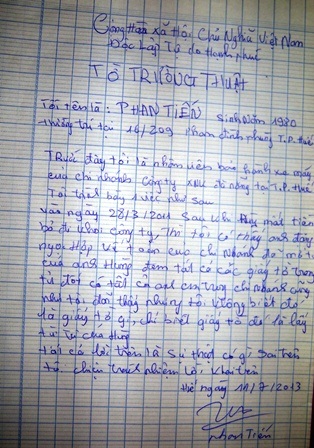 Cộng Hòa Xã Hội Chủ Nghĩa Việt Nam
Độc Lập Tự do Hạnh phúc
TỜ TRƯỜNG THUẬT
Tôi tên là: PHAN TIẾN Sinh năm 1980
Thường trú tại 16/209 Phan đình phùng T.P. Huế
Trước đây tôi là nhân viên bảo hành xe máy
của chi nhánh công ty đà nẵng tại T.P Huế
Tôi trình bày sự việc như sau
vào ngày 28/3/2011 sau khi mất tiền
bỏ đi khỏi công ty, Thì tôi có thấy anh
ngọc Hợp kế toán của chi nhánh
của anh Hùng đem tất cả các giấy tờ trong
tủ đốt có tất cả anh em trong chi nhánh cũng
như tôi đều thấy nhưng tôi không biết đó
là giấy tờ gì, chỉ biết giấy tờ đó là lấy
từ tủ của Hùng
tôi có lời trên là sự thật có gì sai trên
tôi chịu trách nhiệm lời khai trên
Huế ngày 11/7/2013
Phan Tiến